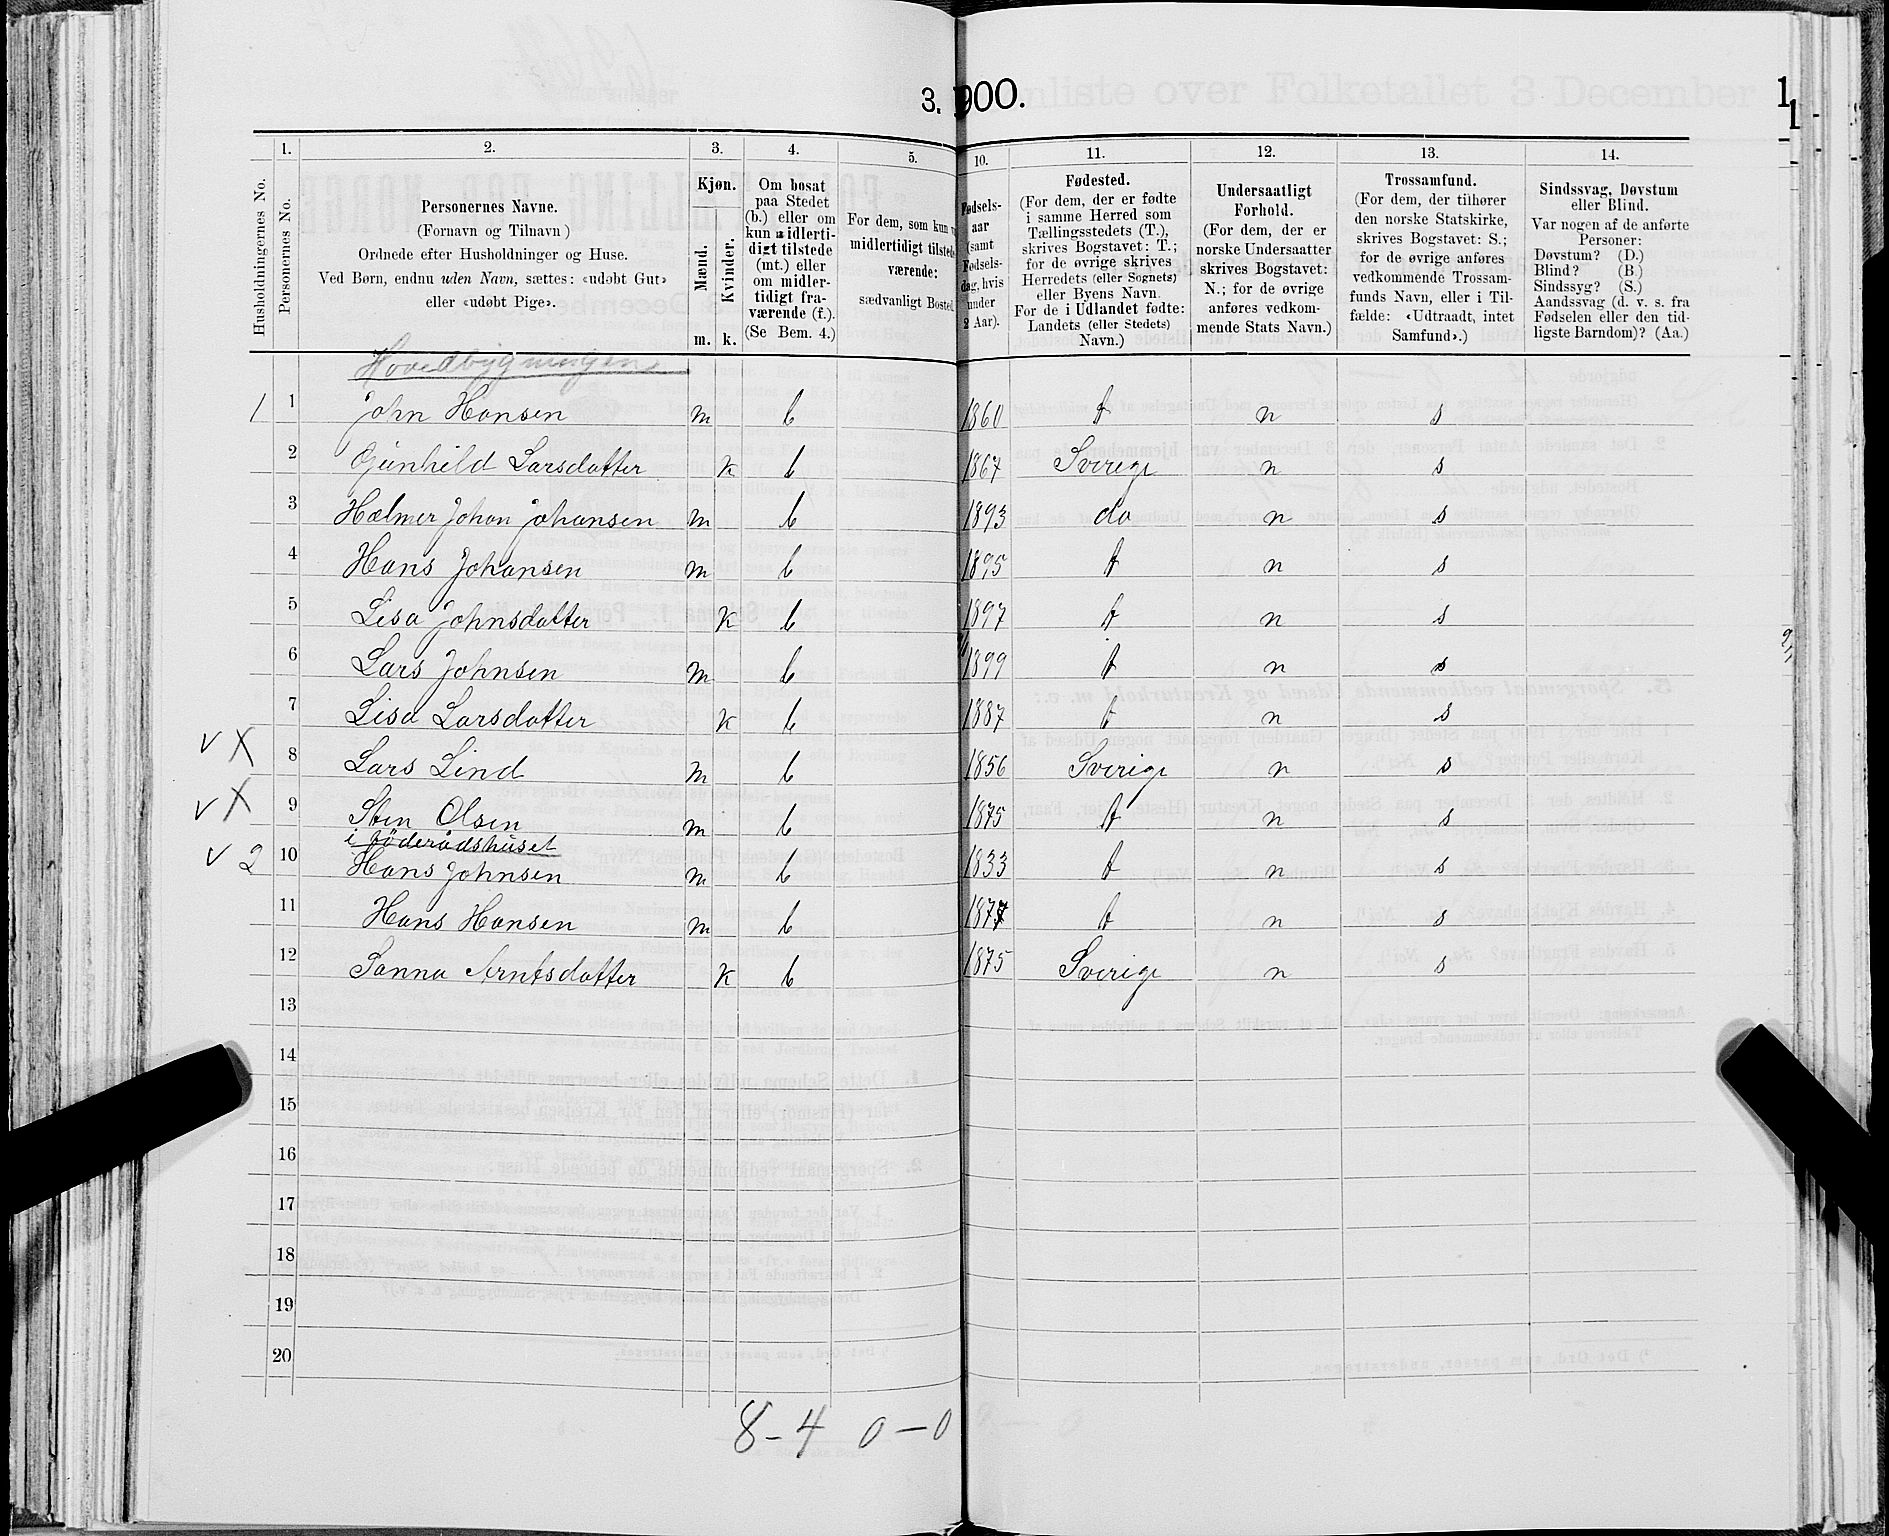 3. 900.
1
1
1.
2.
3.
4.
5.
10.
11.
12.
13.
14.
Husholdningernes No.
Personernes No.
Personernes Navne.
(Fornavn og Tilnavn)
Ordnede efter Husholdninger og Huse.
Ved Børn, endnu uden Navn, sættes: «udøbt Gut»
eller «udøbt Pige».
Kjøn.
Mænd.
Kvinder.
m. k.
Om bosat
paa Stedet
(b.) eller om
kun midlerti-
digt tilstede
(mt.) eller
om midler-
tidigt fra-
værende (f.).
(Se Bem. 4.)
For dem, som kun
midlertidigt tilstede-
værende:
sædvanligt Bosted.
Fødsels-
aar
(samt
Fødsels-
dag, hvis
under
2 Aar).
Fødested.
(For dem, der er fødte
i samme Herred som
Tællingsstedets (T.),
skrives Bogstavet: T.;
for de øvrige skrives
Herredets (eller Sognets)
eller Byens Navn.
For de i Udlandet fødte:
Landets (eller Stedets)
Navn.)
Undersaatligt
Forhold.
(For dem, der er
norske Undersaatter
skrives Bogstavet:
N.; for de øvrige
anføres vedkom-
mende Stats Navn.)
Trossamfund.
(For dem, der tilhører
den norske Statskirke,
skrives Bogstavet: S.;
for de øvrige anføres
vedkommende Trossam-
funds Navn, eller i Til-
fælde: «Udtraadt, intet
Samfund».)
Sindssvag, Døvstum
eller Blind.
Var nogen af de anførte
Personer:
Døvstum? (D.)
Blind? (B.)
Sindssyg? (S.)
Aandssvag (d. v. s. fra
Fødselen eller den tid-
ligste Barndom)? (Aa.)
Hovedbygningen
1 1 John Hansen m b 1860 t n s
2 Gunhild Larsdatter k b 1867 Sverige n s
3 Hælmer Johan Johansen m b 1893 do n s
4 Hans Johansen m b 1895 t n s
5 Lisa Johnsdatter k b 1897 t n s
6 Lars Johnsen m b 1899 t n s
7 Lisa Larsdatter k b 1887 t n s
v X 8 Lars Lind m b 1856 Sverige n s
v X 9 Sten Olsen m b 1875 t n s
i föderådshuset
v 2 10 Hans Johnsen m b 1833 t n s
11 Hans Hansen m b 1877 t n s
12 Sanna Arntsdatter k b 1875 Sverige n s
13
14
15
16
17
18
19
20
8 - 4 0 - 0